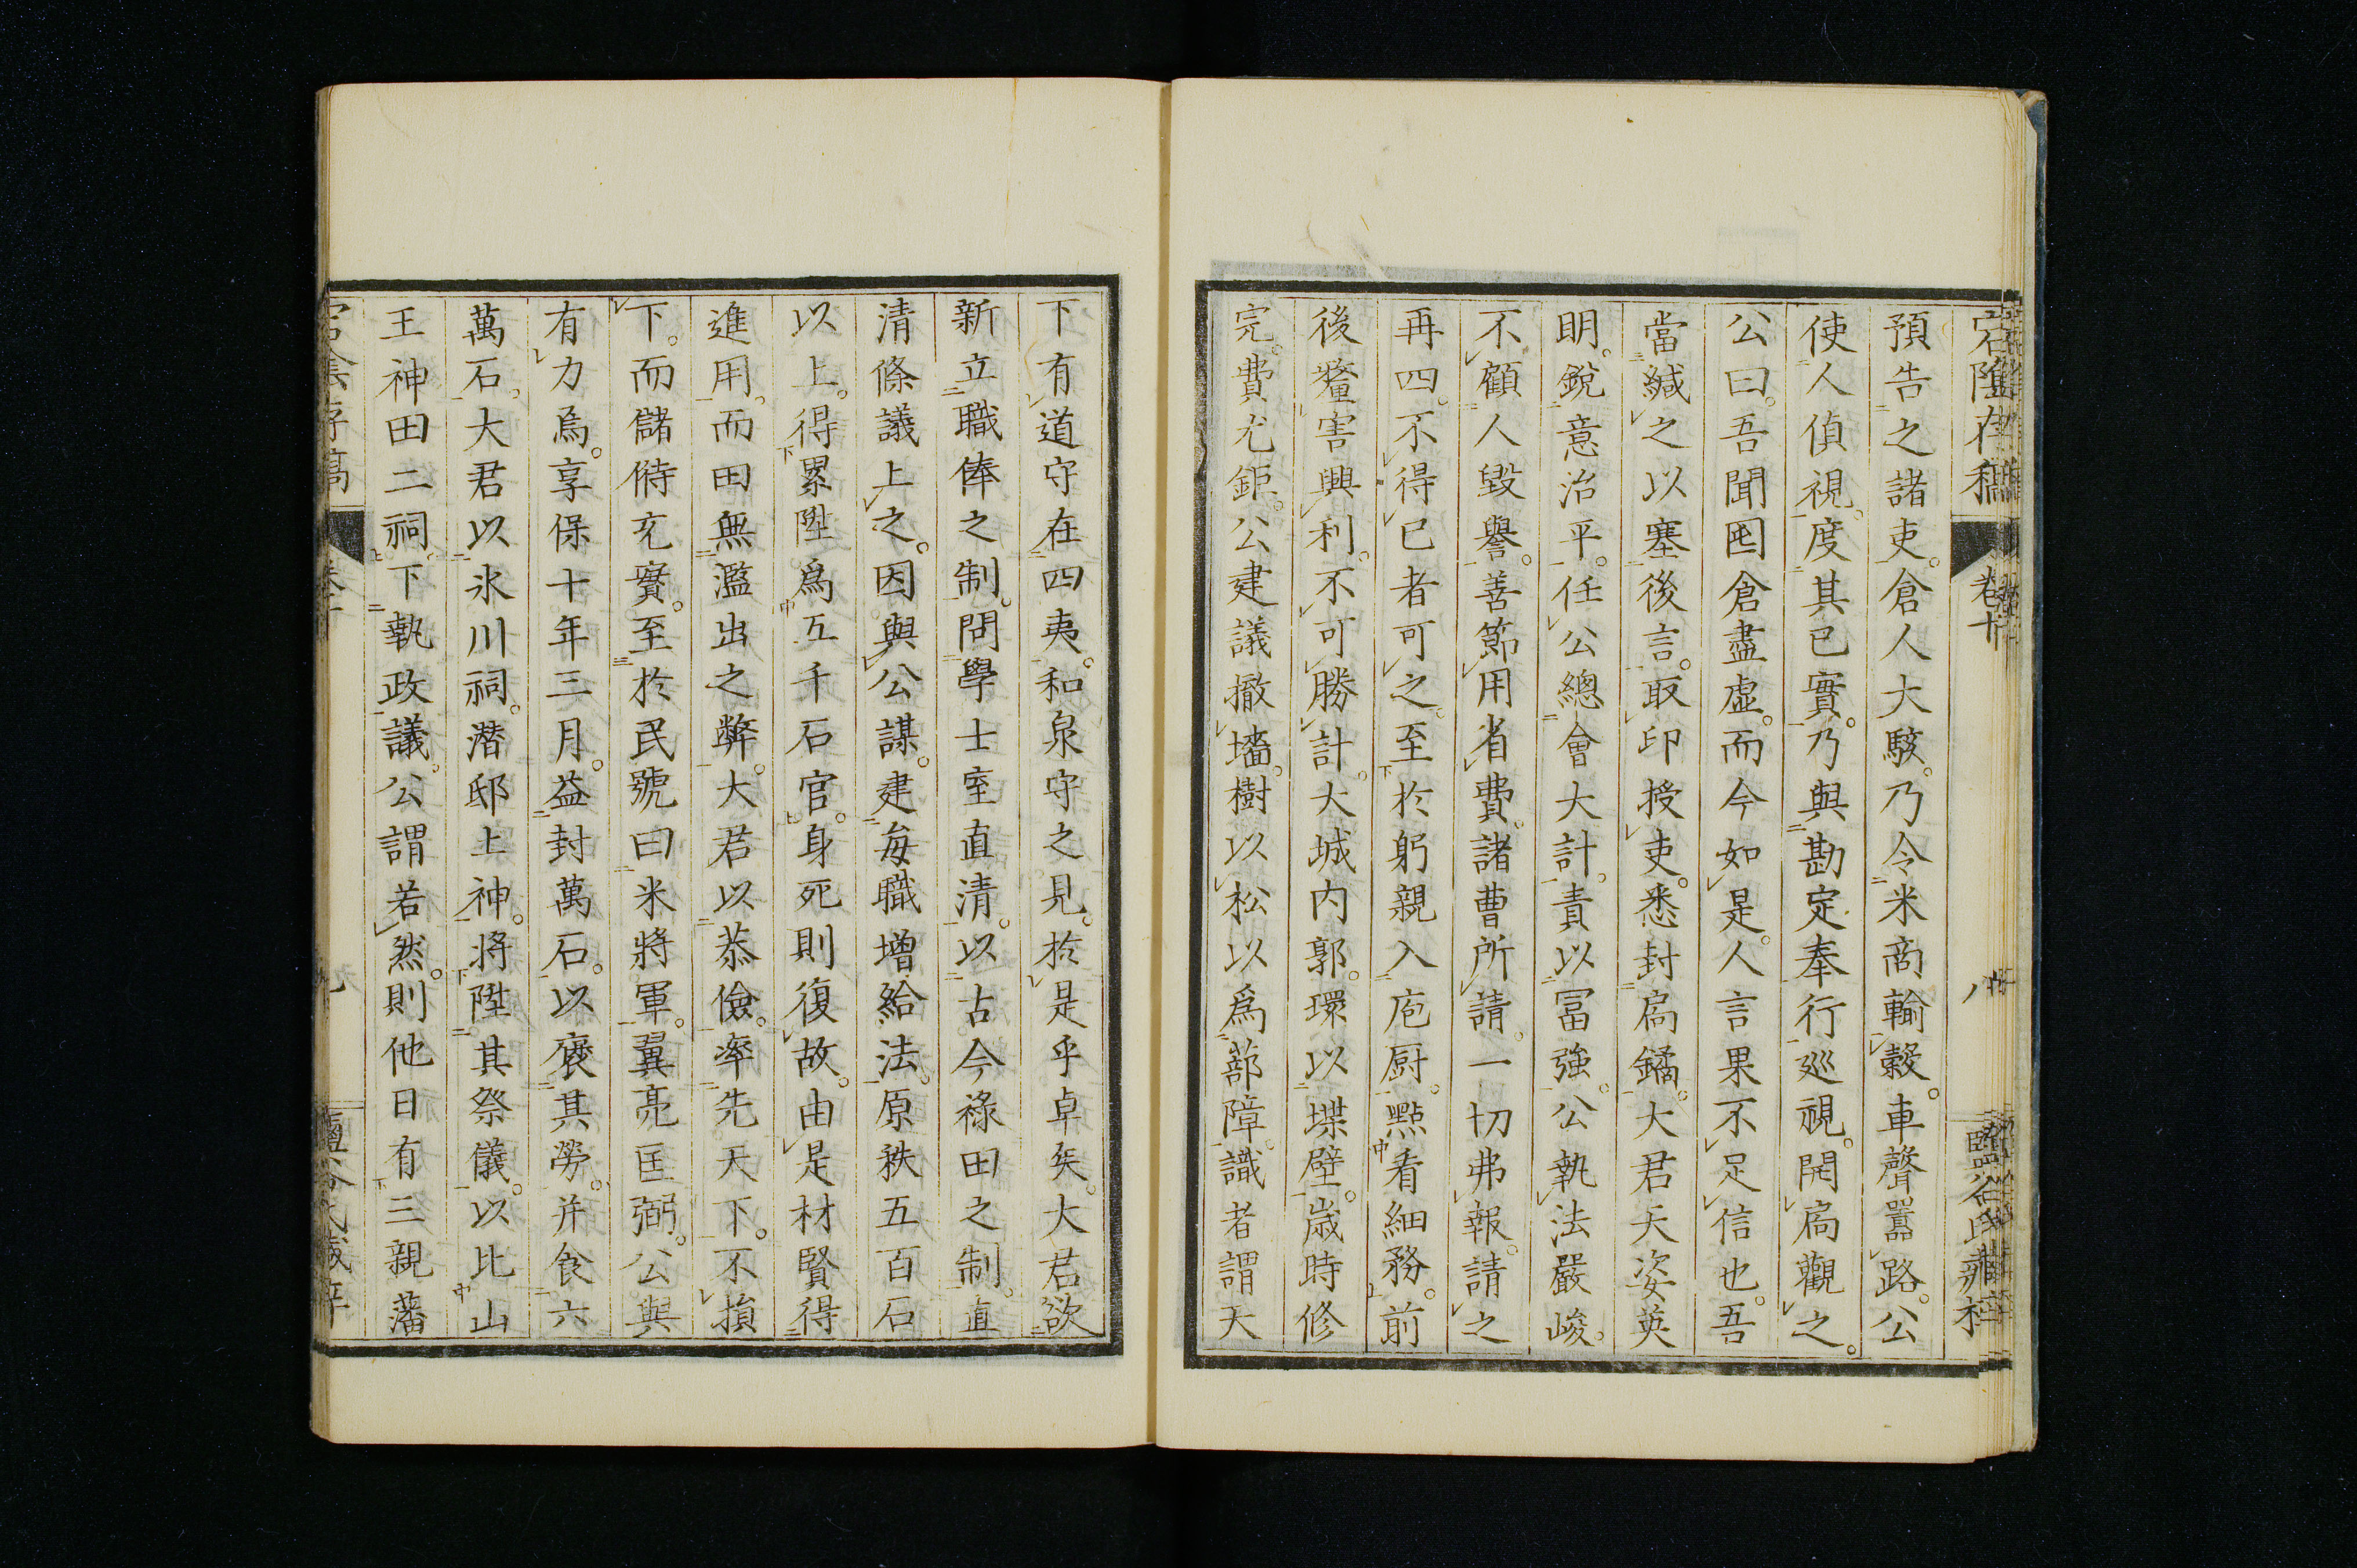 宕陰存稿 卷十 八 鹽谷氏藏梓
預告之諸吏。倉人大駭。乃令米商輸穀。車聲囂路。公
使人偵視。度其已實。乃與勘定奉行巡視。開扃觀之。
公曰。吾聞囷倉盡虛。而今如是。人言果不足信也。吾
當緘之以塞後言。取印授吏。悉封扃鐍。大君天姿英
明。銳意治平。任公總會大計。責以冨強。公執法嚴峻。
不顧人毀譽。善節用省費。諸曹所請。一切弗報。請之
再四。不得已者可之。至於躬親入庖厨。㸃看細務。前
後釐害興利。不可勝計。大城内郭。環以堞壁。歳時修
完。費尤鉅。公建議撤墻。樹以松以爲蔀障。識者謂天
下有道守在四夷。和泉守之見。於是乎卓矣。大君欲
新立職俸之制。問學士室直清。以古今祿田之制。直
清條議上之。因與公謀。建每職增給法。原秩五百石
以上。得累陞爲五千石官。身死則復故。由是材賢得
進用。而田無濫出之弊。大君以恭儉。率先天下。不損
下。而儲偫充實。至於民號曰米將軍。翼亮匡弼。公與
有力焉。享保十年三月。益封萬石。以襃其勞。并食六
萬石。大君以氷川祠。潛邸上神。將陞其祭儀。以比山
王神田二祠。下執政議。公謂若然。則他日有三親藩
卷十 九